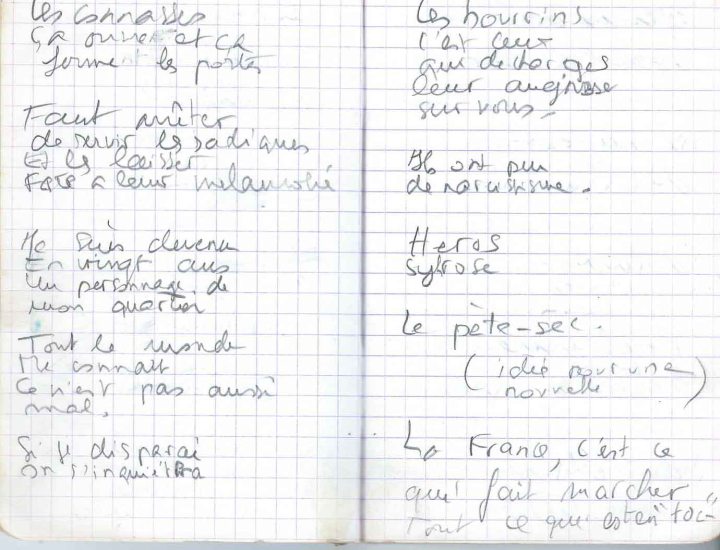 Les connasses
Ça ouvre et ça
ferme les portes
Faut arrêter
de servir les sadiques
Et les laisser
Face à leur mélancolie
Me suis devenu
En vingt ans
Un personnage de
mon quartier
Tout le monde
Me connait
Ce n'est pas aussi
mal.
Si je disparai
On s'inquiétra
Les bourrins
C'est ceux
qui décharges
leur angoisse
sur vous.
Ils ont peu
de narcissisme.
Heros
Le pète-sec.
(idée pour une
nouvelle)
La France, c'est ce
qui fait marcher
Tout ce que est en "toc"